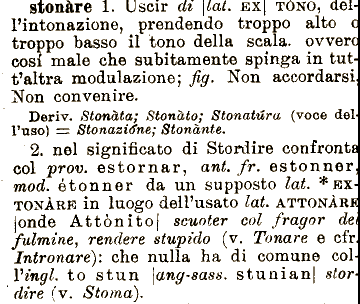 stonàre 1. Uscir di |lat. EX| TÒNO, del-
l'intonazione, prendendo troppo alto o
troppo basso il tono della scala. ovvero
così male che subitamente spinga in tut-
t'altra modulazione; fig. Non accordarsi,
Non convenire.
Deriv. Stonàta; Stonàto; Stonatúra (voce del-
l'uso) = Stonazióne; Stonànte.
2. nel significato di Stordire confronta
col prov. estornar, ant. fr. estonner,
mod. étonner da un supposto lat. * EX-
TONÀRE in luogo dell'usato lat. ATTONÀRE
|onde Attònito| scuoter col fragor del
fulmine, rendere stupido (v. Tonare e cfr.
Intronare): che nulla ha di comune col-
l'ingl. to stun |ang-sass. stunian| stor-
dire (v. Stoma).